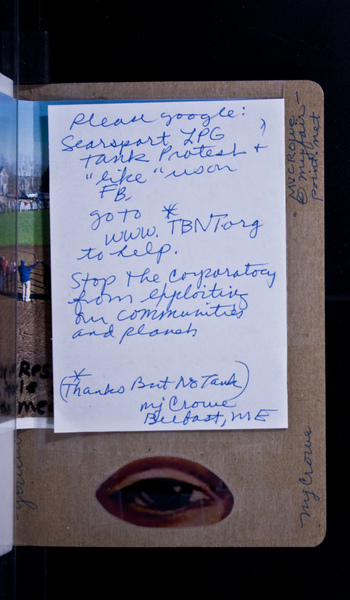 Please google:
Searsport LPG
tank Protest +
"like" us on
FB,
go to *
www.TBNT.org
to help.
Stop the Corporatocy
from exploiting
our communities
and planet
*
(Thanks But No Tank)
mj Crowe
Belfast, ME
MJCROWE
@ myfair-
point.net
mj Crowe
Res
me